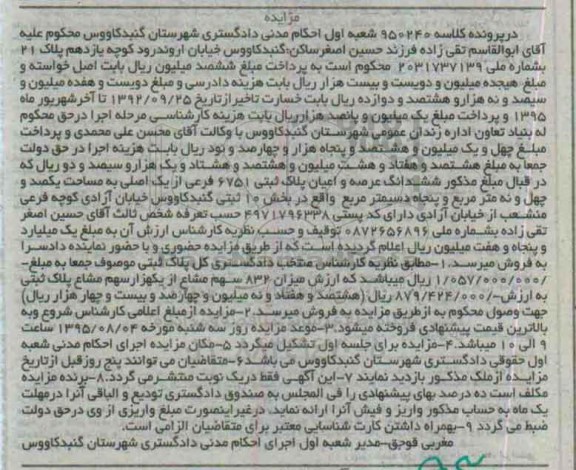 مزایده
درپرونده کلاسه ۹۵۰۲۴۰ شعبه اول احکام مدنی دادگستری شهرستان گنبدکاووس محکوم علیه
آقای ابوالقاسم تقی زاده فرزند حسین اصغرساکن:گنبدکاووس خیابان اروندرود کوچه یازدهم پلاک ۲۱
بشماره ملی ۲۰۳۱۷۳۷۱۳۹ محکوم است به پرداخت مبلغ ششصد میلیون ریال بابت اصل خواسته و
مبلغ هیجده میلیون و دویست و بیست هزار ریال بابت هزینه دادرسی و مبلغ دویست و هفده میلیون و
سیصد و نه هزارو هشتصد و دوازده ریال بابت خسارت تاخیر ازتاریخ ۱۳۹۲/۰۹/۲۵ تا آخرشهریور ماه
۱۳۹۵ و پرداخت مبلغ یک میلیون و پانصد هزارریال بابت هزینه کارشناسی مرحله اجرا درحق محکوم
له بنیاد تعاون اداره زندان عمومی شهرستان گنبدکاووس با وکالت آقای محسن علی محمدی و پرداخت
مبلغ چهل و یک میلیون و هشتصد و پنجاه هزار و چهارصد و نود ریال بابت هزینه اجرا در حق دولت
جمعا به مبلغ هشتصد و هفتاد و هشت میلیون و هشتصد و هشتاد و یک هزارو سیصد و دو ریال که
در قبال مبلغ مذکور ششدانگ عرصه و اعیان پلاک ثبتی ۶۷۵۱ فرعی از یک اصلی به مساحت یکصد و
چهل و نه متر مربع و پنجاه دسیمتر مربع واقع در بخش ۱۰ ثبتی گنبدکاووس خیابان آزادی کوچه فرعی
منشعب از خیابان آزادی دارای کد پستی ۴۹۷۱۷۹۶۳۳۸ حسب تعرفه شخص ثالث آقای حسین اصغر
تقی زاده بشماره ملی ۰۸۷۲۶۵۶۸۹۶ توقیف و حسب نظریه کارشناس ارزش آن به مبلغ یک میلیارد
و پنجاه و هفت میلیون ریال اعلام گردیده است که از طریق مزایده حضوری و با حضور نماینده دادسرا
به فروش میرسد.۱-مطابق نظریه کارشناس منتخب دادگستری کل پلاک ثبتی موصوف جمعا به مبلغ-
/۱/۰۵۷/۰۰۰/۰۰۰ ریال میباشد که ارزش میزان ۸۳۲ سهم مشاع از یکهزارسهم مشاع پلاک ثبتی
به ارزش-/۸۷۹/۴۲۴/۰۰۰ ریال(هشتصد و هفتاد و نه میلیون و چهارصد و بیست و چهار هزار ریال)
جهت وصول محکوم به ازطریق مزایده به فروش میرسد.۲-مزایده ازمبلغ اعلامی کارشناس شروع وبه
بالاترین قیمت پیشنهادی فروخته میشود.۳-موعد مزایده روز سه شنبه مورخه ۱۳۹۵/۰۸/۰۴ ساعت
۹ الی ۱۰ میباشد.۴-مزایده برای جلسه اول تشکیل میگردد ۵-مکان مزایده اجرای احکام مدنی شعبه
اول حقوقی دادگستری شهرستان گنبدکاووس می باشد ۶-متقاضیان می توانند پنج روزقبل ازتاریخ
مزایده ازملک مذکور بازدید نمایند ۷-این آگهی فقط دریک نوبت منتشرمی گردد.۸-برنده مزایده
مکلف است ده درصد بهای پیشنهادی را فی المجلس به صندوق دادگستری تودیع و الباقی آنرا درمهلت
یک ماه به حساب مذکور واریز و فیش آنرا ارائه نماید. درغیراینصورت مبلغ واریزی از وی درحق دولت
ضبط می گردد ۹-بهمراه داشتن کارت شناسایی معتبر برای متقاضیان الزامی است.
مغربی قوجق-مدیر شعبه اول اجرای احکام مدنی دادگستری شهرستان گنبدکاووس